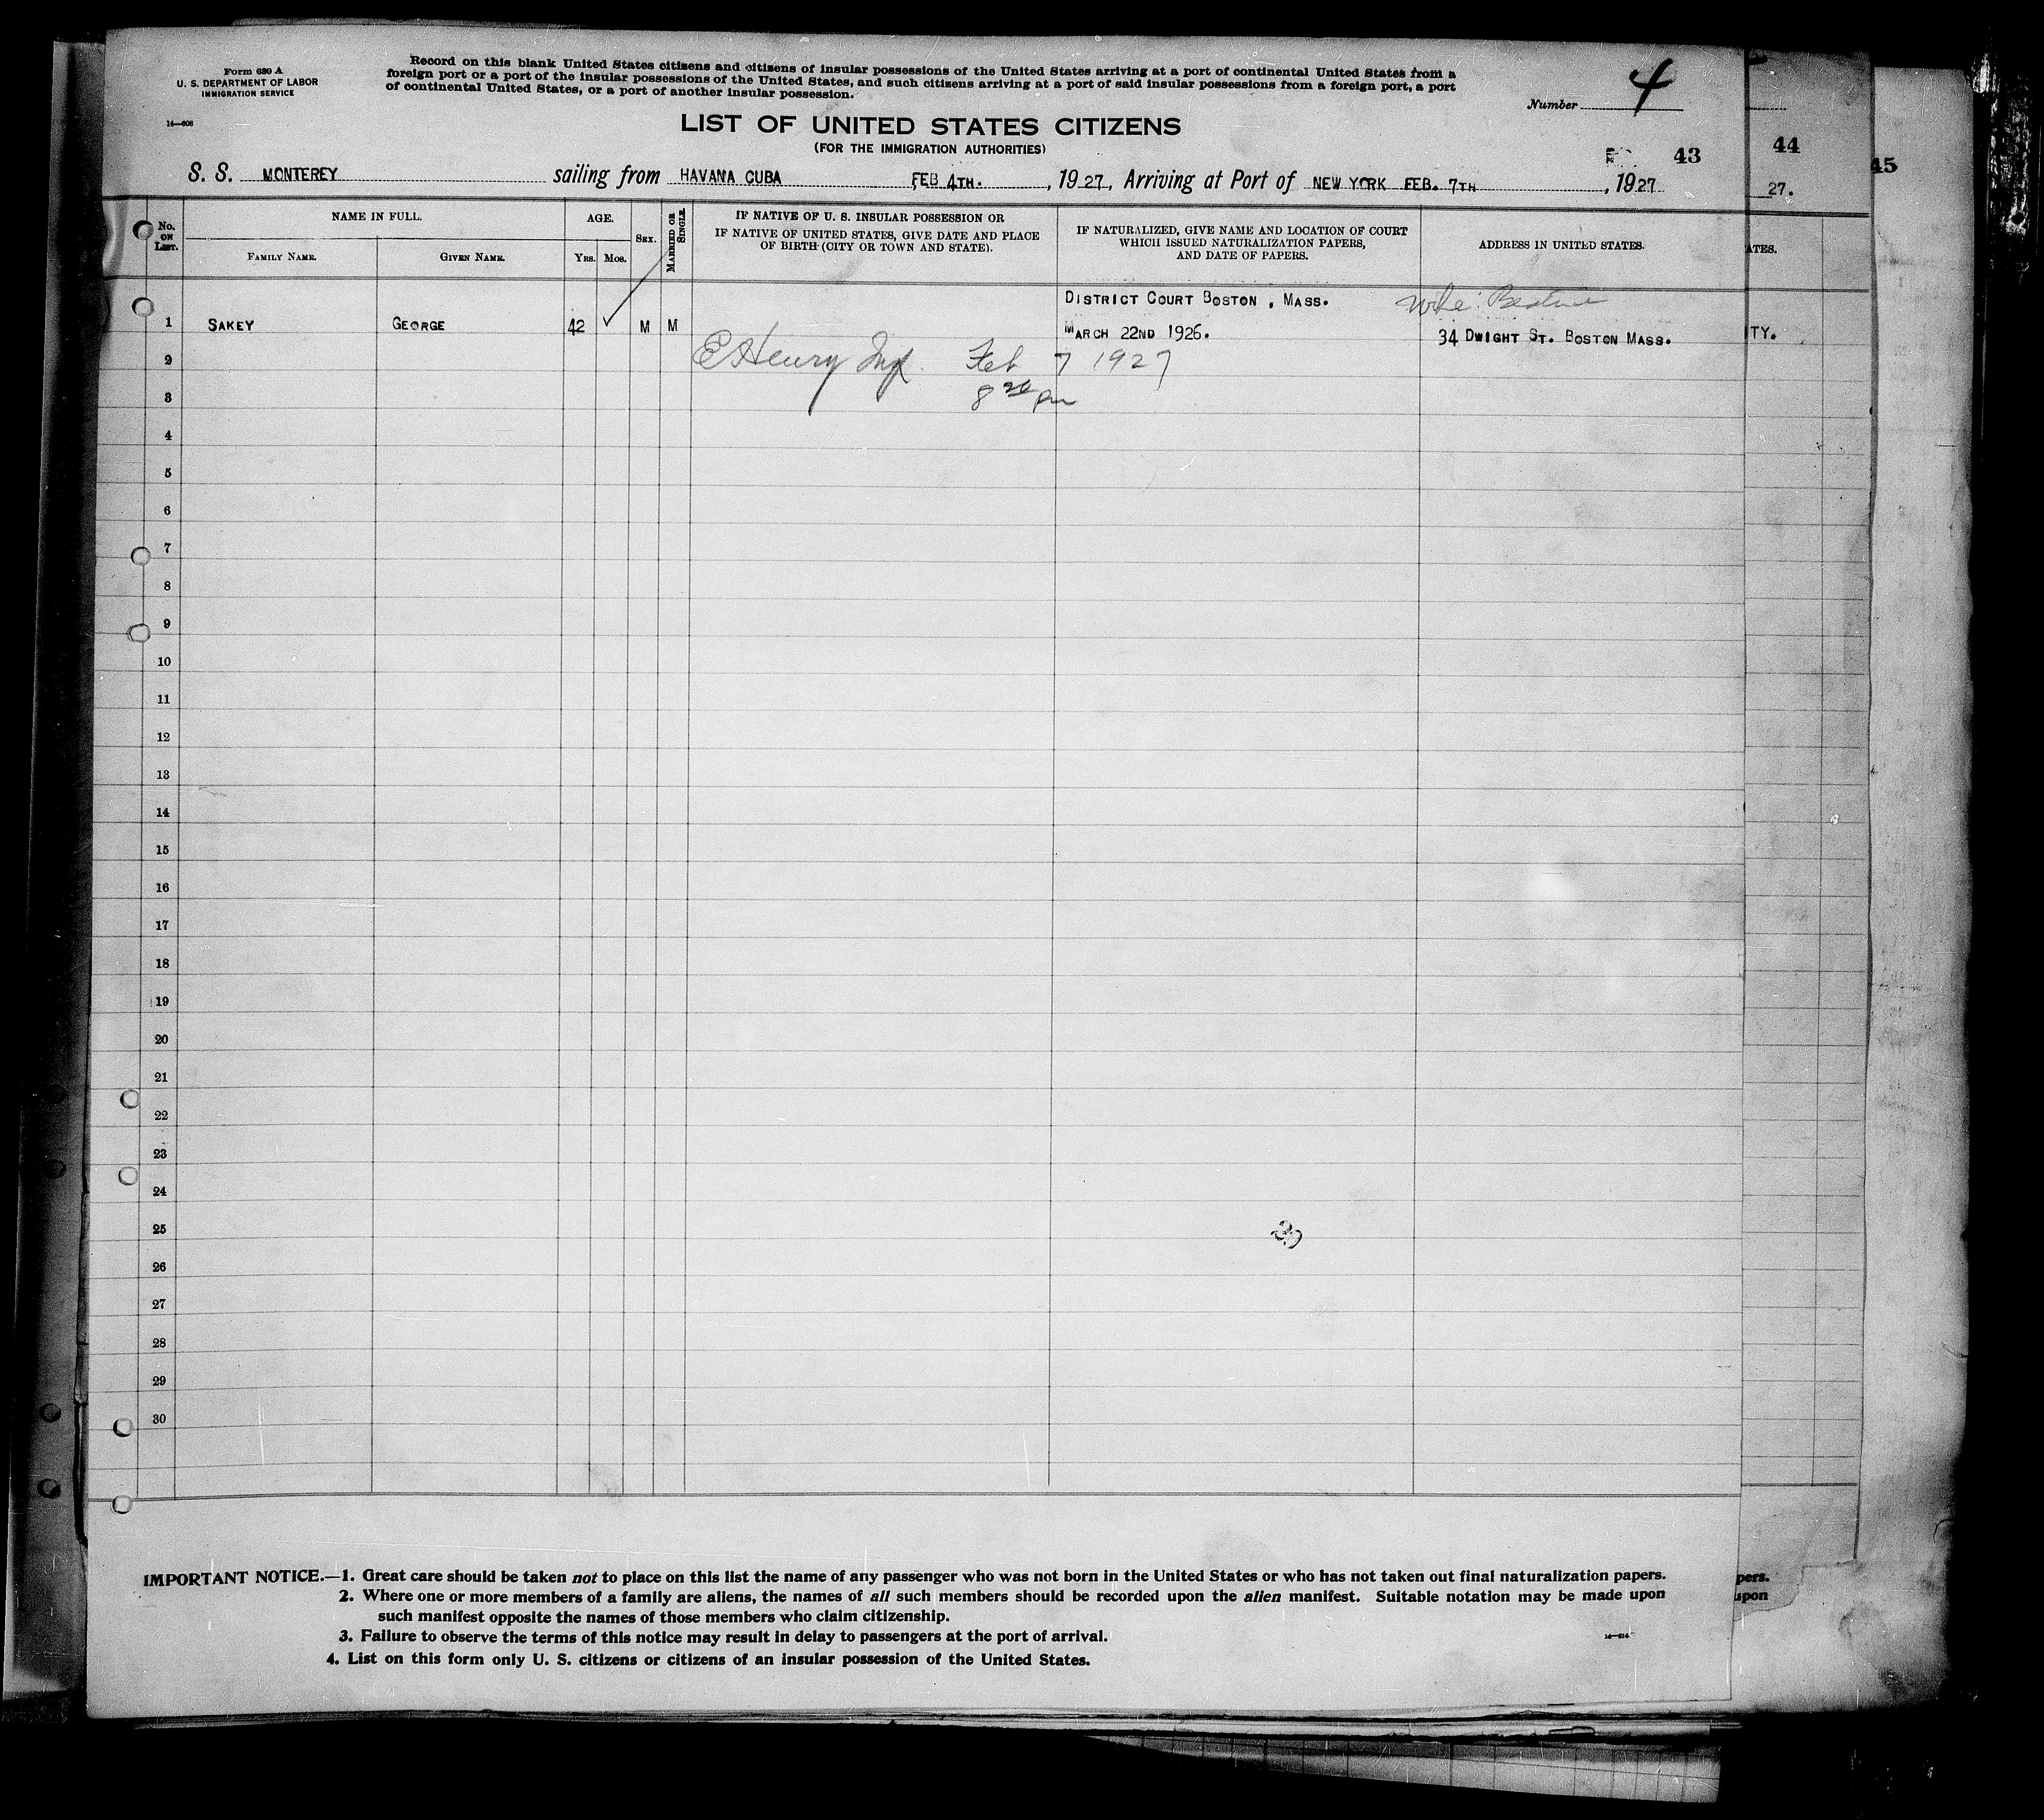 Form 630 A
U. S. DEPARTMENT OF LABOR
IMMIGRATION SERVICE
14—608
Record on this blank United States citizens and citizens of insular possessions of the United States arriving at a port of continental United States from a
foreign port or a port of the insular possessions of the United States, and such citizens arriving at a port of said insular possessions from a foreign port, a port
of continental United States, or a port of another insular possession.
Number 4
LIST OF UNITED STATES CITIZENS
(FOR THE IMMIGRATION AUTHORITIES)
43
44
45
S. S. MONTEREY sailing from HAVANA CUBA FEB 4TH. , 1927, Arriving at Port of NEW YORK FEB. 7TH , 1927
27.
No. ON LIST.
NAME IN FULL.
FAMILY NAME.
GIVEN NAME.
AGE.
YRS.
MOS.
SEX.
MARRIED OR SINGLE.
IF NATIVE OF U. S. INSULAR POSSESSION OR
IF NATIVE OF UNITED STATES, GIVE DATE AND PLACE
OF BIRTH (CITY OR TOWN AND STATE).
IF NATURALIZED, GIVE NAME AND LOCATION OF COURT
WHICH ISSUED NATURALIZATION PAPERS,
AND DATE OF PAPERS.
ADDRESS IN UNITED STATES.
ATES.
DISTRICT COURT BOSTON , MASS.
1 SAKEY GEORGE 42 M M MARCH 22ND 1926. 34 DWIGHT ST. BOSTON MASS.
ITY.
2 E Henry Insp. Feb 7 1927
3 pm
4
5
6
7
8
9
10
11
12
13
14
15
16
17
18
19
20
21
22
23
24
25
26
27
28
29
30
IMPORTANT NOTICE.—1. Great care should be taken not to place on this list the name of any passenger who was not born in the United States or who has not taken out final naturalization papers.
2. Where one or more members of a family are aliens, the names of all such members should be recorded upon the alien manifest. Suitable notation may be made upon
such manifest opposite the names of those members who claim citizenship.
3. Failure to observe the terms of this notice may result in delay to passengers at the port of arrival.
4. List on this form only U. S. citizens or citizens of an insular possession of the United States.
pers.
upon